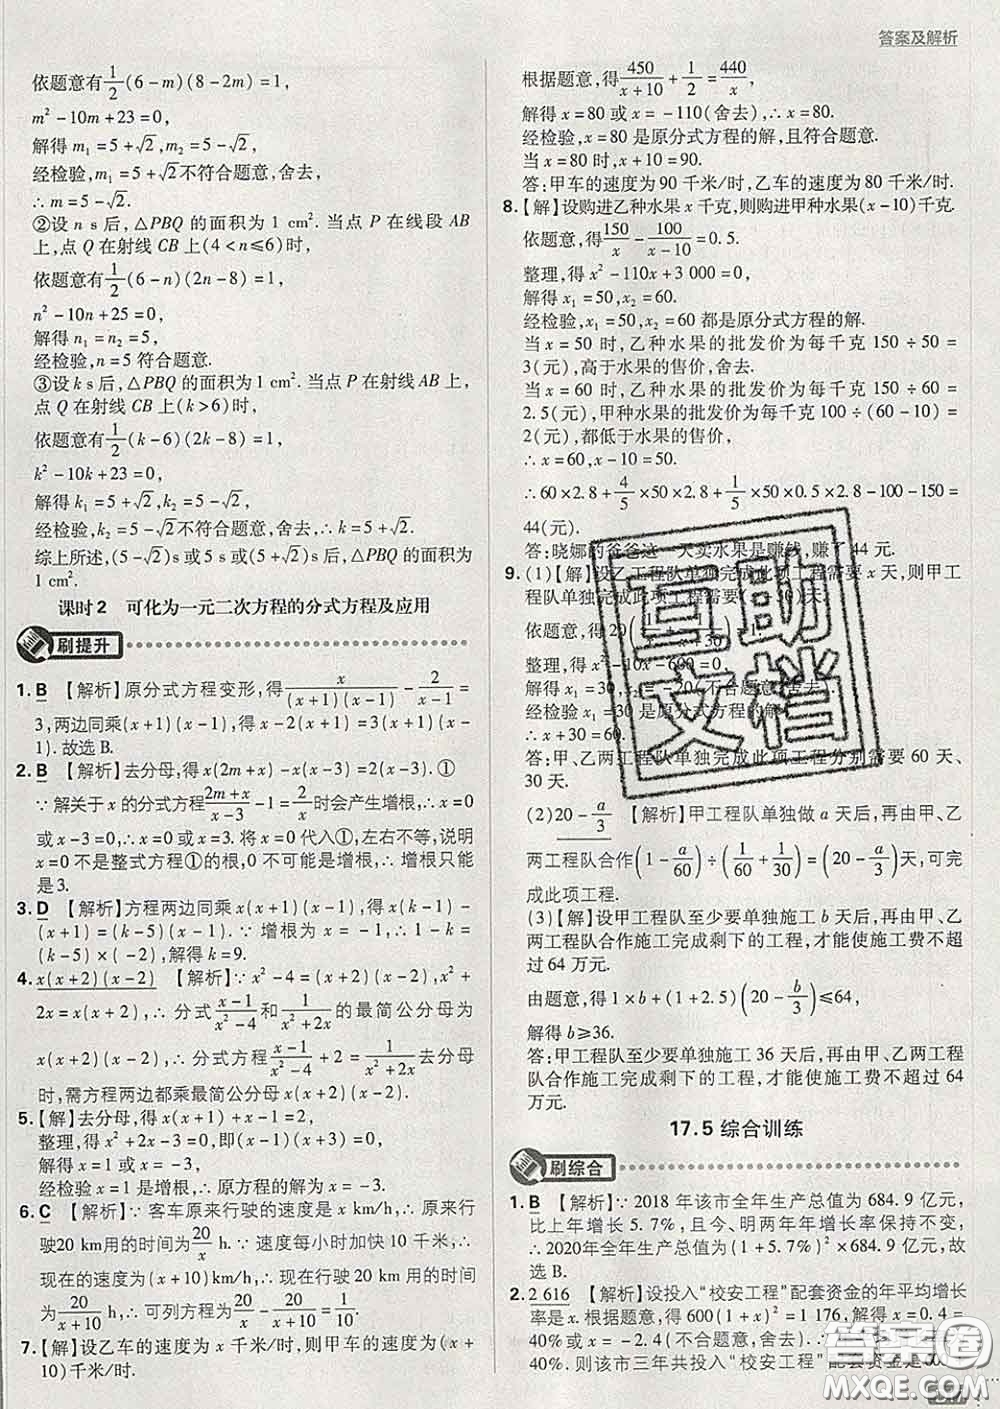 答案及解析
依题意有1/2(6-m)(8-2m)=1,
m²-10m+23=0,
解得 m₁=5+√2,m₂=5-√2,
经检验,m₁=5+√2不符合题意,舍去,
∴ m=5-√2.
②设 n s 后,△PBQ 的面积为1 cm². 当点 P 在线段 AB
上,点 Q 在射线 CB 上(4<n≤6)时,
依题意有1/2(6-n)(2n-8)=1,
n²-10n+25=0,
解得 n₁=n₂=5,
经检验,n=5 符合题意.
③设 k s 后,△PBQ 的面积为1 cm². 当点 P 在射线 AB 上,
点 Q 在射线 CB 上(k>6)时,
依题意有1/2(k-6)(2k-8)=1,
k²-10k+23=0,
解得 k₁=5+√2,k₂=5-√2,
经检验,k₂=5-√2不符合题意,舍去,∴ k=5+√2.
综上所述,(5-√2)s或5 s或(5+√2)s后,△PBQ 的面积为
1 cm².
课时2 可化为一元二次方程的分式方程及应用
刷提升
1. B 【解析】原分式方程变形,得x/((x+1)(x-1))-2/(x-1)=
3,两边同乘(x+1)(x-1),得x-2(x+1)=3(x+1)(x-
1). 故选 B.
2. B 【解析】去分母,得x(2m+x)-x(x-3)=2(x-3). ①
∵ 解关于 x 的分式方程(2m+x)/(x-3)-1=2/x时会产生增根,∴ x=0
或x-3=0,∴ x=0或x=3. 将x=0代入①,左右不等,说明
x=0不是整式方程①的根,0不可能是增根,∴ 增根只能
是3.
3. D 【解析】方程两边同乘x(x+1)(x-1),得x(k-1)-
(x+1)=(k-5)(x-1). ∵ 增根为x=-1,∴ 1-k=
(k-5)×(-2),解得 k=9.
4. x(x+2)(x-2) 【解析】∵ x²-4=(x+2)(x-2),x²+
2x=x(x+2),∴ 分式(x-1)/(x²-4)和1/(x²+2x)的最简公分母为
x(x+2)(x-2),∴ 分式方程(x-1)/(x²-4)+2=1/(x²+2x)去分母
时,需方程两边都乘最简公分母x(x+2)(x-2).
5.【解】去分母,得x(x+1)+x+1=2,
整理,得x²+2x-3=0,即(x-1)(x+3)=0,
解得x=1或x=-3,
经检验x=-3为分式方程的解,∴ 原方程的解为x=-3.
6. C 【解析】∵ 客车原来行驶的速度是x km/h,∴ 原来行
驶20 km用的时间为20/x h. ∵ 速度每小时加快10千米,∴
现在的速度为(x+10)km/h,∴ 现在行驶20 km用的时间
为20/(x+10) h,∴ 可列方程为20/x-20/(x+10)=1/10.
7.【解】设乙车的速度为x千米/时,则甲车的速度为(x+
10)千米/时.
根据题意,得450/(x+10)+1/2=440/x,
解得x=80或x=-110(舍去),∴ x=80.
经检验,x=80是原分式方程的解,且符合题意.
当x=80时,x+10=90.
答:甲车的速度为90千米/时,乙车的速度为80千米/时.
8.【解】设购进乙种水果x千克,则购进甲种水果(x-10)千克.
依题意,得150/x-100/(x-10)=0.5.
整理,得x²-110x+3 000=0,
解得x₁=50,x₂=60.
经检验,x₁=50,x₂=60都是原分式方程的解.
当x=50时,乙种水果的批发价为每千克150÷50=
3(元),高于水果的售价,舍去.
当x=60时,乙种水果的批发价为每千克150÷60=
2.5(元),甲种水果的批发价为每千克100÷(60-10)=
2(元),都低于水果的售价,
∴ x=60,x-10=50.
∴ 60×2.8+4/5×50×2.8+1/5×50×0.5×2.8-100-150=
44(元).
答:晓娜的爸爸这一天卖水果是赚钱,赚了44元.
9.(1)【解】设乙工程队单独完成此项工程需要x天,则甲工
程队单独完成此项工程需要(x+30)天,
依题意,得20(1/x+1/(x+30))=1,
整理,得x²-10x-600=0,
解得x₁=30,x₂=-20(不合题意,舍去).
经检验,x₁=30是原分式方程的解.
∴ x+30=60.
答:甲、乙两工程队单独完成此项工程分别需要60天、
30天.
(2)20-a/3 【解析】甲工程队单独做a天后,再由甲、乙
两工程队合作(1-a/60)÷(1/60+1/30)=(20-a/3)天,可完
成此项工程.
(3)【解】设甲工程队至少要单独施工b天后,再由甲、乙
两工程队合作施工完成剩下的工程,才能使施工费不超
过64万元.
由题意,得1×b+(1+2.5)(20-b/3)≤64,
解得b≥36.
答:甲工程队至少要单独施工36天后,再由甲、乙两工程
队合作施工完成剩下的工程,才能使施工费不超过64
万元.
17.5 综合训练
刷综合
1. B 【解析】∵ 2018年该市全年生产总值为684.9亿元,
比上年增长5.7%,且今、明两年年增长率保持不变,
∴ 2020年全年生产总值为(1+5.7%)²×684.9亿元. 故
选 B.
2. 2 616 【解析】设投入“校安工程”配套资金的年平均增长
率是x. 根据题意,得600(1+x)²=1 176,解得x=0.4=
40%或x=-2.4(不合题意,舍去). ∴
40%. 则该市三年共投入“校安工程”配套资金是
互助文档
答案圈
MXQE.COM